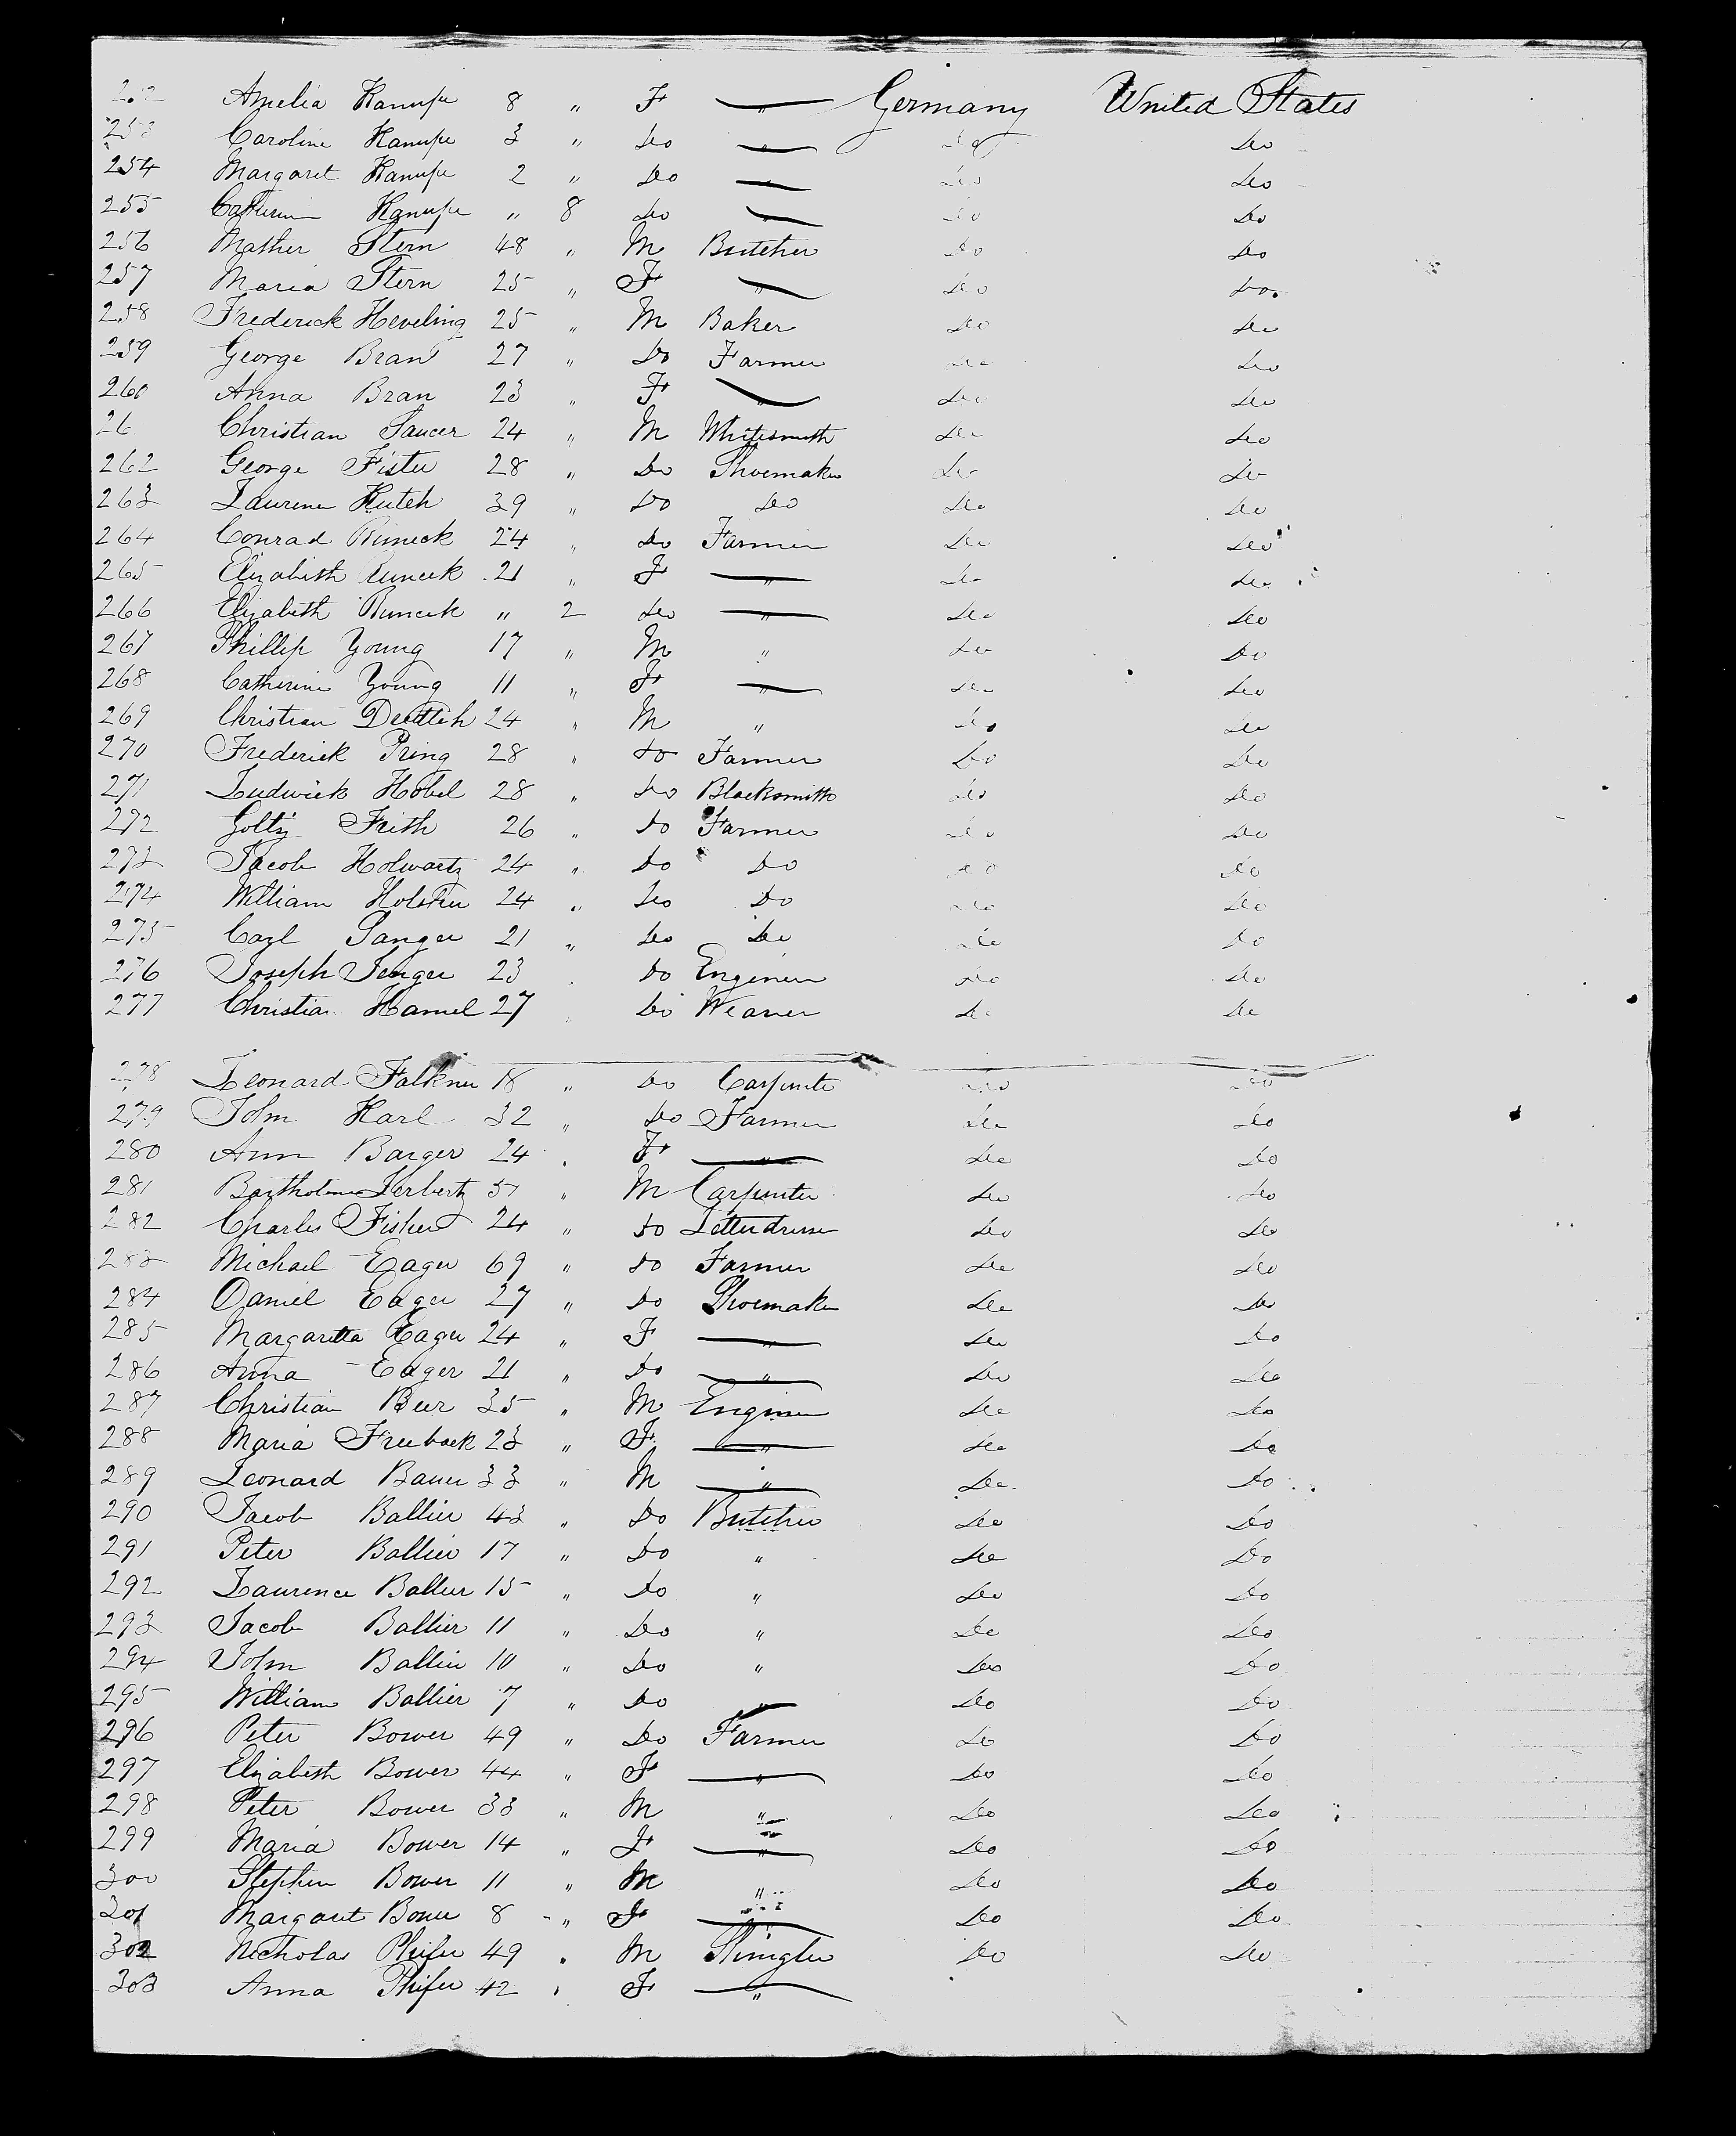 252 Amelia Kanupe 8 " F " Germany United States
253 Caroline Kanupe 3 " Do " Do Do
254 Margaret Kanupe 2 " Do " Do Do
255 Catherin Kanupe " 8 Do " Do Do
256 Mather Stern 48 " M Butcher Do Do
257 Maria Stern 25 " F " Do Do
258 Frederick Heveling 25 " M Baker Do Do
259 George Bran 27 " Do Farmer Do Do
260 Anna Bran 23 " F " Do Do
26 Christian Saucer 24 " M Whitesmith Do Do
262 George Fister 28 " Do Shoemaker Do Do
263 Laurence Huteh 39 " Do Do Do Do
264 Conrad Rimeck 24 " Do Farmer Do Do
265 Elizabeth 21 " F " Do Do
266 Elizabeth " 2 Do " Do Do
267 Phillip Young 17 " M " Do Do
268 Catherine Young 11 " F " Do Do
269 Christian Deuttch 24 " M " Do Do
270 Frederick Pring 28 " Do Farmer Do Do
271 Ludwick Hobel 28 " Do Blacksmith Do Do
272 Frith 26 " Do Farmer Do Do
273 Jacob Holwartz 24 " Do Do Do Do
274 William 24 " Do Do Do Do
275 Carl Sanger 21 " Do Do Do Do
276 Joseph Senger 23 Do Engineer Do Do
277 Christian Hamel 27 Do Weaver Do Do
278 Leonard Falkner 18 " Do Carpenter Do Do
279 John Karl 32 " Do Farmer Do Do
280 Ann Barger 24 " F " Do Do
281 Bartholomew " M Carpenter Do Do
282 Charles Fisher 24 " Do Do Do
283 Michael Eager 69 " Do Farmer Do Do
284 Daniel Eager 27 " Do Shoemaker Do Do
285 Margaretta Eager 24 " F " Do Do
286 Anna Eager 21 " Do " Do Do
287 Christian Beer 35 " M Engineer Do Do
288 Maria Freeback 23 " F " Do Do
289 Leonard Bauer 33 " M " Do Do
290 Jacob Ballier 43 " Do Butcher Do Do
291 Peter Ballier 17 " Do " Do Do
292 Laurence Ballier 15 " Do " Do Do
293 Jacob Ballier 11 " Do " Do Do
294 John Ballier 10 " Do " Do Do
295 William Ballier 7 " Do " Do Do
296 Peter Bower 49 " Do Farmer Do Do
297 Elizabeth Bower 44 " F " Do Do
298 Peter Bower 33 " M " Do Do
299 Maria Bower 14 " F " Do Do
300 Stephen Bower 11 " M " Do Do
301 Margaret Bower 8 " F " Do Do
302 Nicholas Phifer 49 " M Do Do
303 Anna Phifer 42 " F "